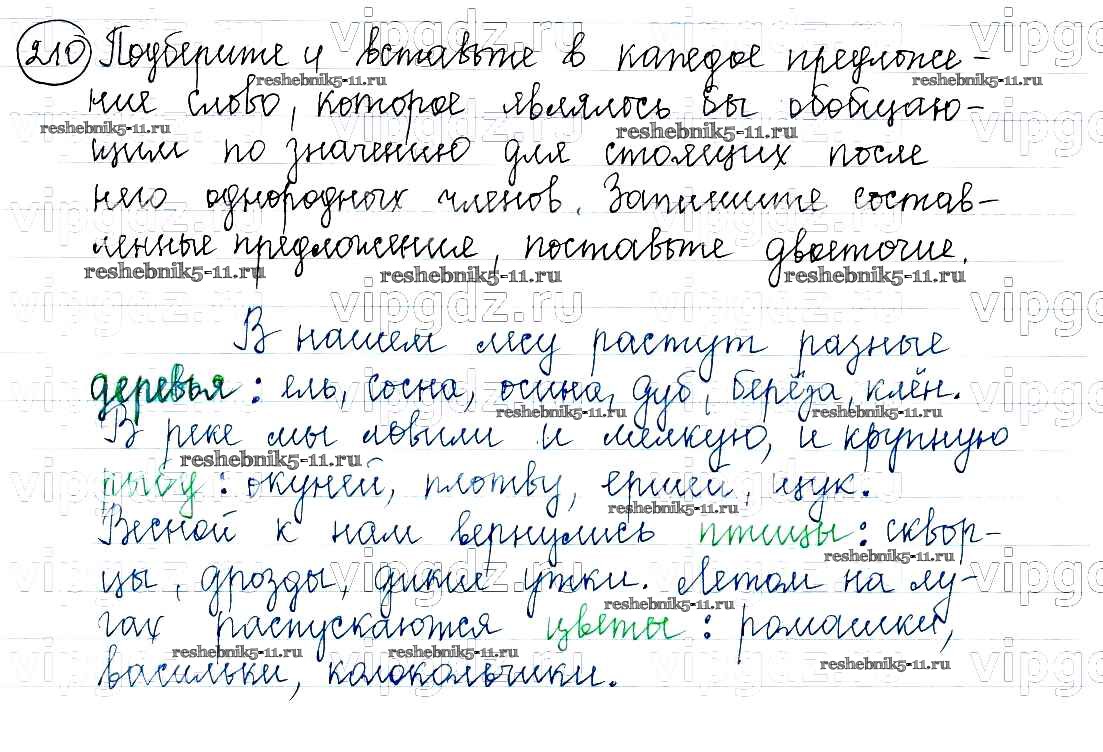 210 Подберите и вставьте в каждое предложе-
ние слово, которое являлось бы обобщаю-
щим по значению для стоящих после
него однородных членов. Запишите состав-
ленные предложения, поставьте двоеточие.
В нашем лесу растут разные
деревья: ель, сосна, осина, дуб, берёза, клён.
В реке мы ловили и мелкую, и крупную
рыбу: окуней, плотву, ершей, щук.
Весной к нам вернулись птицы: сквор-
цы, дрозды, дикие утки. Летом на лу-
гах распускаются цветы: ромашки,
васильки, колокольчики.